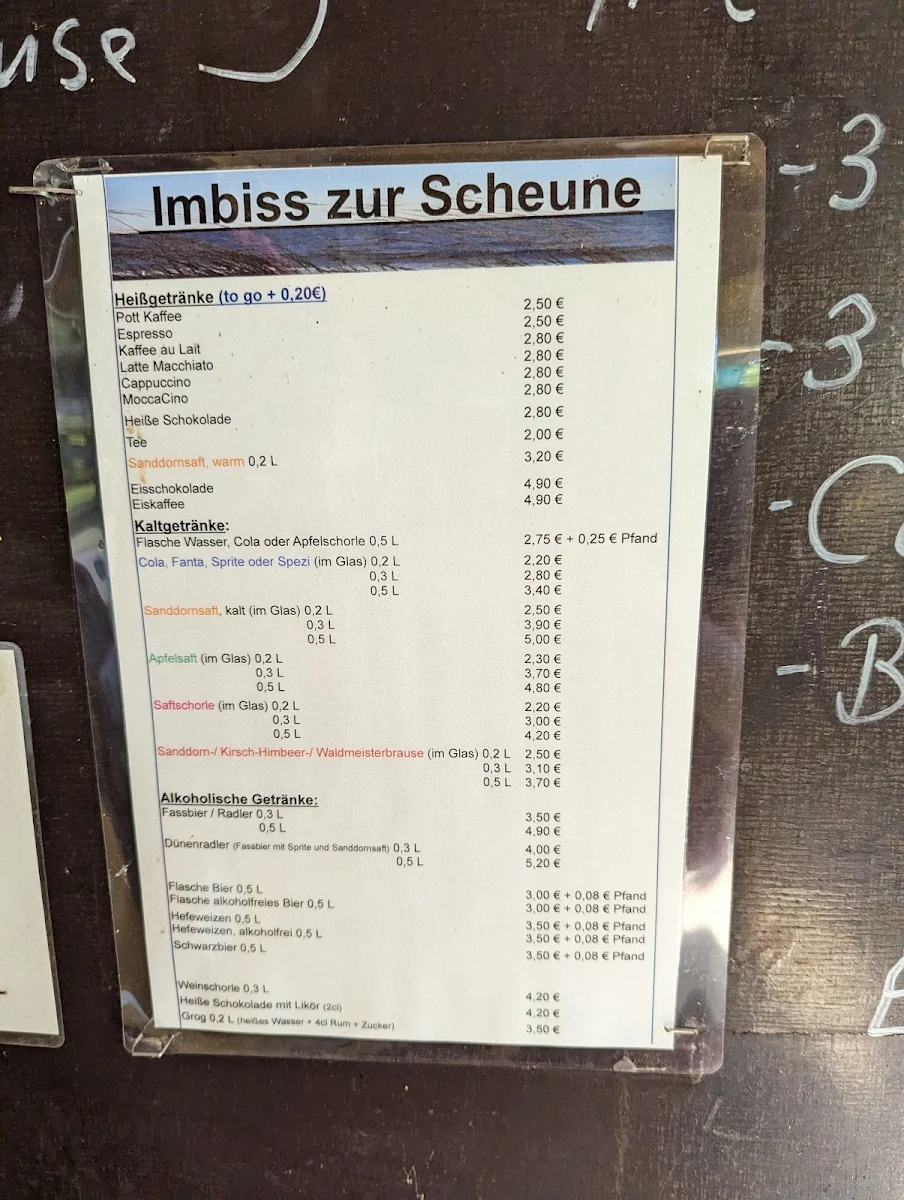 use
Imbiss zur Scheune
Heißgetränke (to go + 0,20€)
Pott Kaffee 2,50 €
Espresso 2,50 €
Kaffee au Lait 2,80 €
Latte Macchiato 2,80 €
Cappuccino 2,80 €
MoccaCino 2,80 €
Heiße Schokolade 2,80 €
Tee 2,00 €
Sanddornsaft, warm 0,2 L 3,20 €
Eisschokolade 4,90 €
Eiskaffee 4,90 €
Kaltgetränke:
Flasche Wasser, Cola oder Apfelschorle 0,5 L 2,75 € + 0,25 € Pfand
Cola, Fanta, Sprite oder Spezi (im Glas) 0,2 L 2,20 €
0,3 L 2,80 €
0,5 L 3,40 €
Sanddornsaft, kalt (im Glas) 0,2 L 2,50 €
0,3 L 3,90 €
0,5 L 5,00 €
Apfelsaft (im Glas) 0,2 L 2,30 €
0,3 L 3,70 €
0,5 L 4,80 €
Saftschorle (im Glas) 0,2 L 2,20 €
0,3 L 3,00 €
0,5 L 4,20 €
Sanddorn-/ Kirsch-Himbeer-/ Waldmeisterbrause (im Glas) 0,2 L 2,50 €
0,3 L 3,10 €
0,5 L 3,70 €
Alkoholische Getränke:
Fassbier / Radler 0,3 L 3,50 €
0,5 L 4,90 €
Dünenradler (Fassbier mit Sprite und Sanddornsaft) 0,3 L 4,00 €
0,5 L 5,20 €
Flasche Bier 0,5 L 3,00 € + 0,08 € Pfand
Flasche alkoholfreies Bier 0,5 L 3,00 € + 0,08 € Pfand
Hefeweizen 0,5 L 3,50 € + 0,08 € Pfand
Hefeweizen, alkoholfrei 0,5 L 3,50 € + 0,08 € Pfand
Schwarzbier 0,5 L 3,50 € + 0,08 € Pfand
Weinschorle 0,3 L 4,20 €
Heiße Schokolade mit Likör (2cl) 4,20 €
Grog 0,2 L (heißes Wasser + 4cl Rum + Zucker) 3,50 €
- 3
- 3
- C
- B